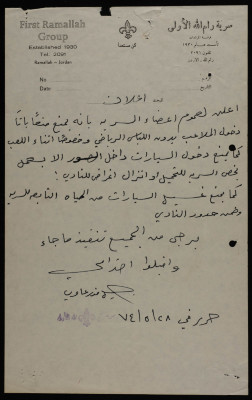 First Ramallah
Group
Established 1930
Tel. 2091
Ramallah - Jordan
سرية رام الله الأولى
كن مستعداً
No.
Date
الرقم
التاريخ
اعلان
اعلن لعموم اعضاء السرية بأنه يمنع منعاً باتاً
دخول الملاعب بدون اللباس الرياضي وخصوصاً اثناء اللعب
كما يمنع دخول السيارات داخل السور الا بسمل
يخص السرية للتحميل او انزال اغراض للنادي
كما يمنع غسيل السيارات من المياه التابعة للسرية
وضمن حدود النادي
يرجى من الجميع تنفيذ ما جاء
واقبلوا احترامي
حرر في ٢٨/٥/٧٤